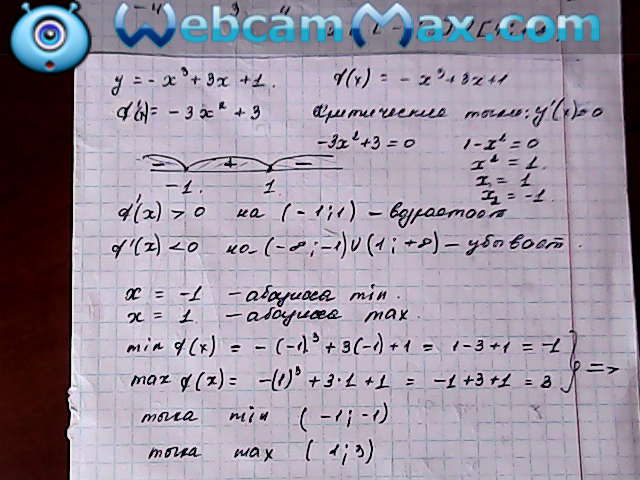 WebcamMax.com
y = -x³ + 3x + 1. f(x) = -x³ + 3x + 1
f'(x) = -3x² + 3 Критические точки: y'(x) = 0
-3x² + 3 = 0 1 - x² = 0
x² = 1.
x₁ = 1
x₂ = -1.
- + -
-1. 1.
f'(x) > 0 на (-1; 1) - возрастает
f'(x) < 0 на (-∞; -1) ∪ (1; +∞) - убывает.
x = -1 - абсцисса min.
x = 1 - абсцисса max.
min f(x) = -(-1)³ + 3(-1) + 1 = 1 - 3 + 1 = -1
max f(x) = -(1)³ + 3·1 + 1 = -1 + 3 + 1 = 3 } =>
точка min (-1; -1)
точка max (1; 3)